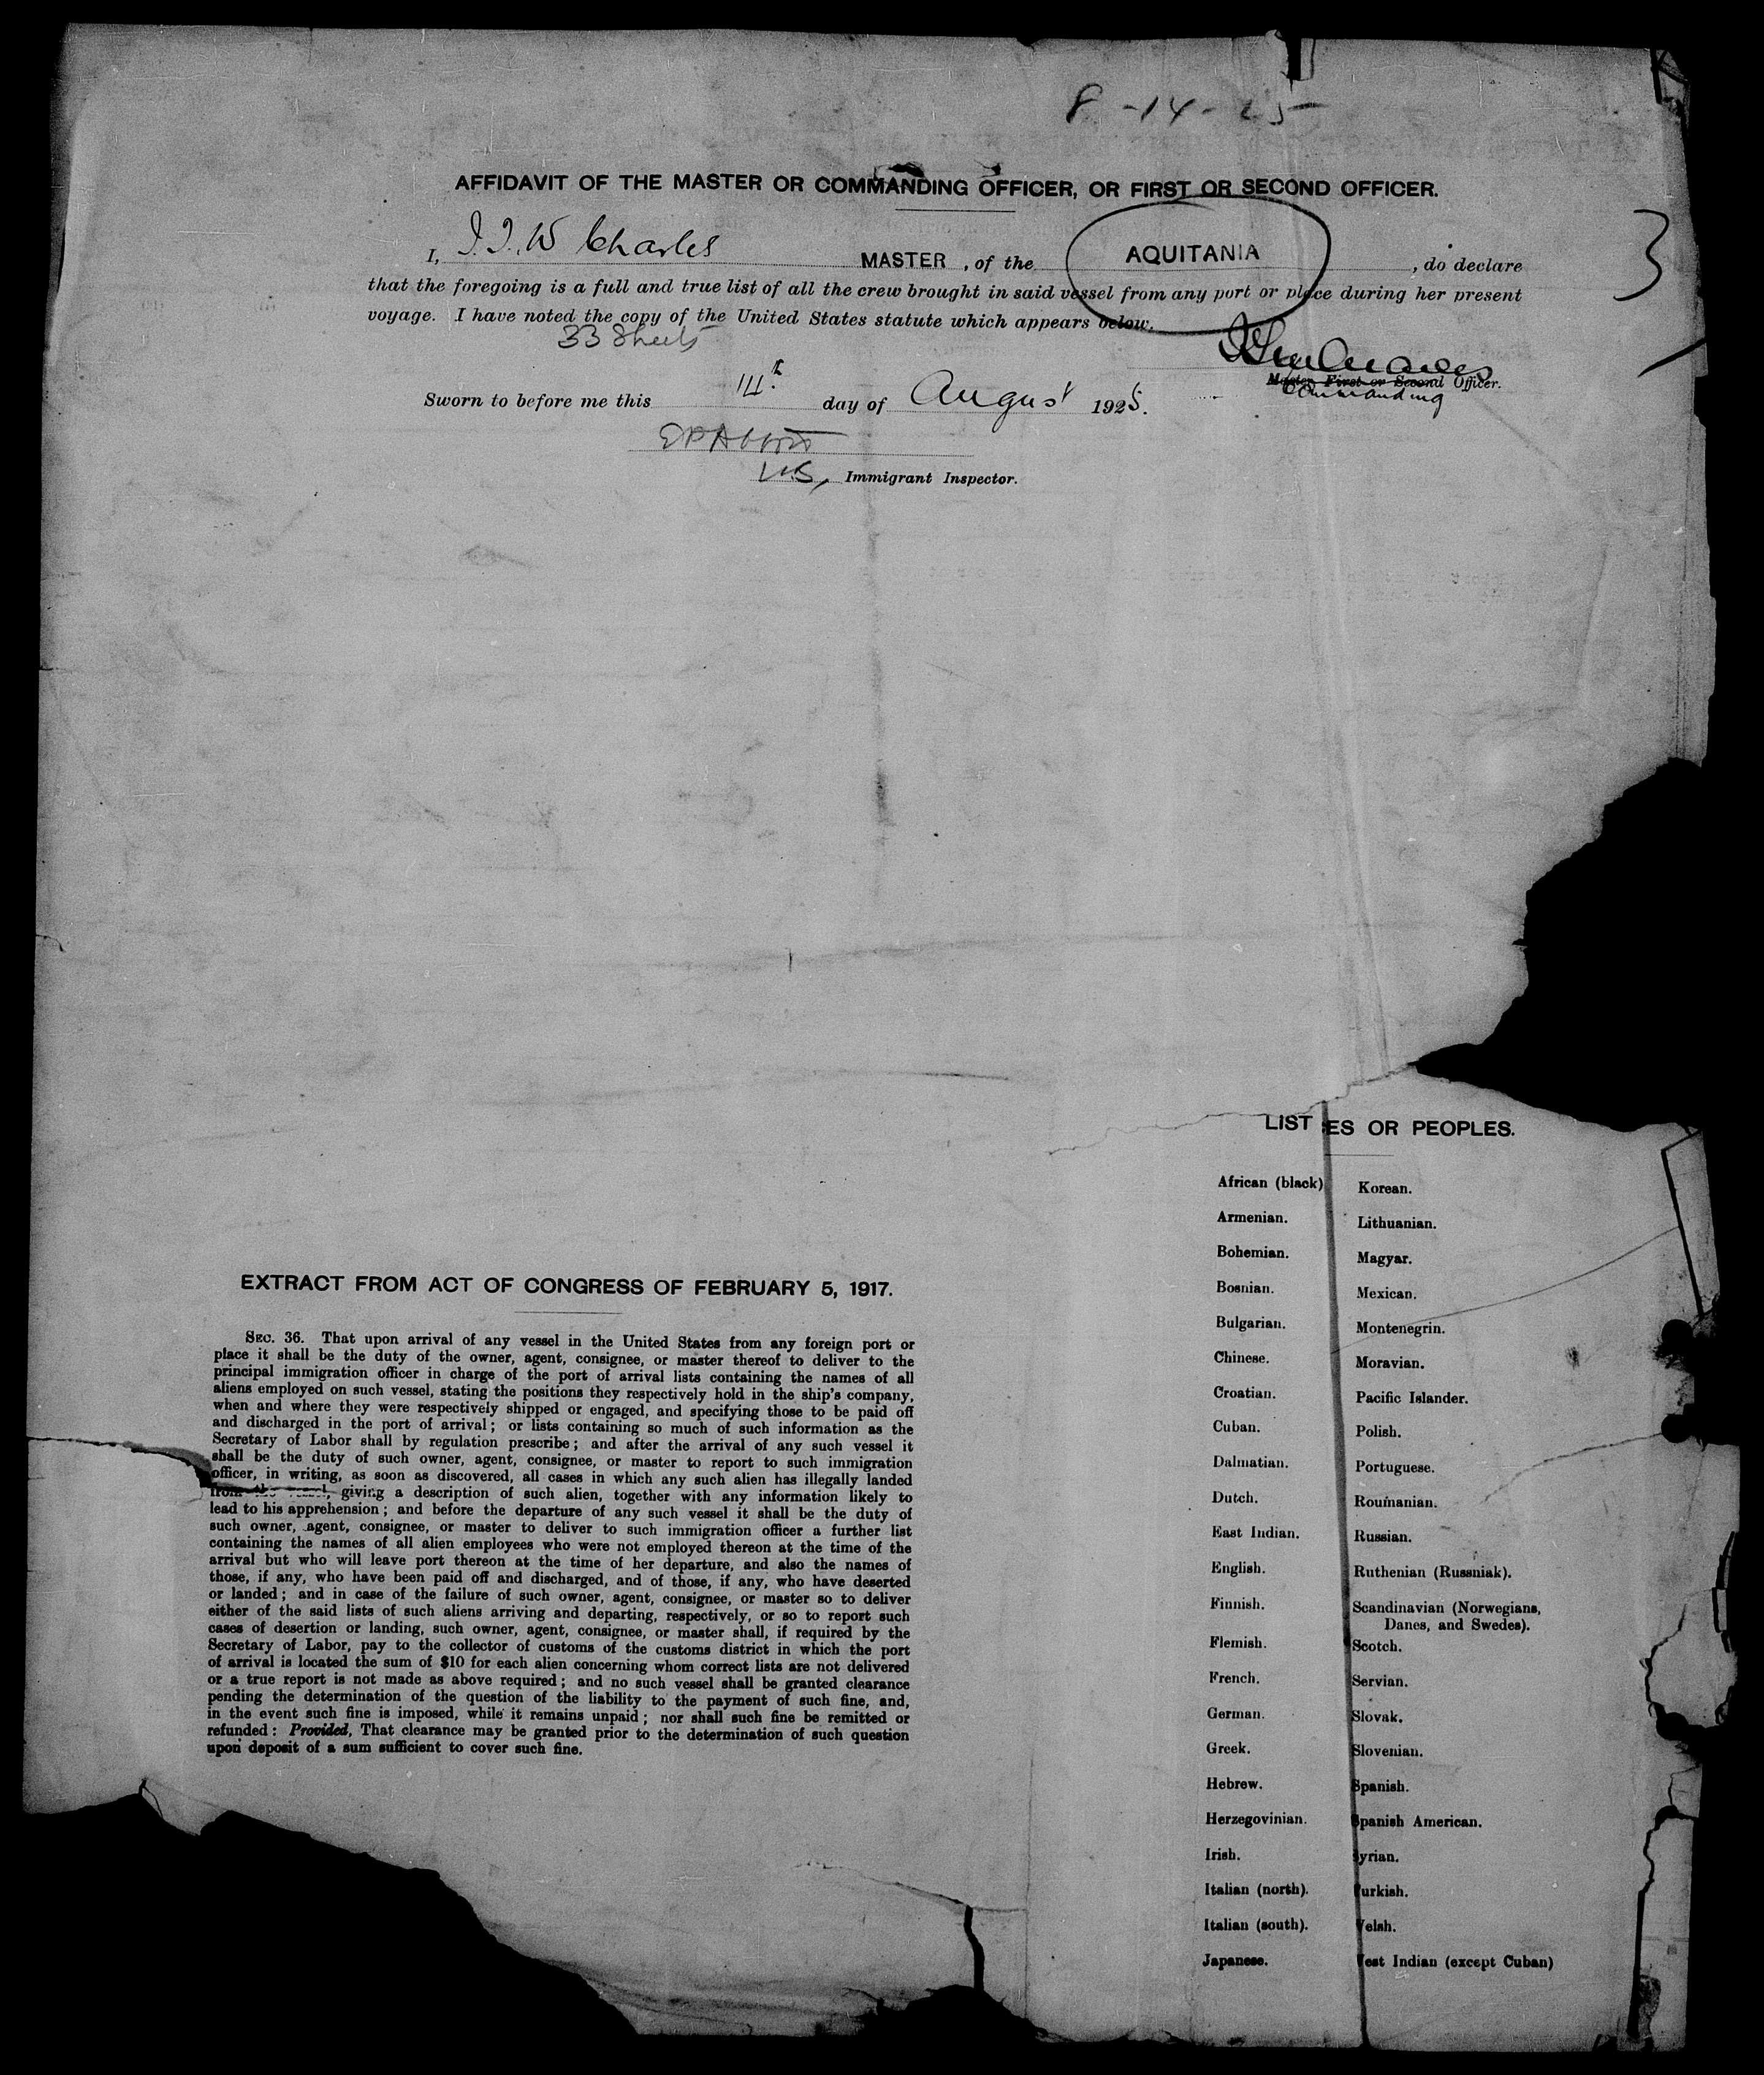 8-14-25
AFFIDAVIT OF THE MASTER OR COMMANDING OFFICER, OR FIRST OR SECOND OFFICER.
3
I, J.T.W Charles MASTER, of the AQUITANIA, do declare
that the foregoing is a full and true list of all the crew brought in said vessel from any port or place during her present
voyage. I have noted the copy of the United States statute which appears below.
33 Sheets
Master, First or Second Officer.
Commanding
Sworn to before me this 14th day of August 1925.
U.S, Immigrant Inspector.
LIST ES OR PEOPLES.
African (black) Korean.
Armenian. Lithuanian.
Bohemian. Magyar.
Bosnian. Mexican.
Bulgarian. Montenegrin.
Chinese. Moravian.
Croatian. Pacific Islander.
Cuban. Polish.
Dalmatian. Portuguese.
Dutch. Roumanian.
East Indian. Russian.
English. Ruthenian (Russniak).
Finnish. Scandinavian (Norwegians,
Danes, and Swedes).
Flemish. Scotch.
French. Servian.
German. Slovak.
Greek. Slovenian.
Hebrew. Spanish.
Herzegovinian. Spanish American.
Irish. Syrian.
Italian (north). Turkish.
Italian (south). Welsh.
Japanese. West Indian (except Cuban)
EXTRACT FROM ACT OF CONGRESS OF FEBRUARY 5, 1917.
SEC. 36. That upon arrival of any vessel in the United States from any foreign port or
place it shall be the duty of the owner, agent, consignee, or master thereof to deliver to the
principal immigration officer in charge of the port of arrival lists containing the names of all
aliens employed on such vessel, stating the positions they respectively hold in the ship's company,
when and where they were respectively shipped or engaged, and specifying those to be paid off
and discharged in the port of arrival; or lists containing so much of such information as the
Secretary of Labor shall by regulation prescribe; and after the arrival of any such vessel it
shall be the duty of such owner, agent, consignee, or master to report to such immigration
officer, in writing, as soon as discovered, all cases in which any such alien has illegally landed
from the vessel, giving a description of such alien, together with any information likely to
lead to his apprehension; and before the departure of any such vessel it shall be the duty of
such owner, agent, consignee, or master to deliver to such immigration officer a further list
containing the names of all alien employees who were not employed thereon at the time of the
arrival but who will leave port thereon at the time of her departure, and also the names of
those, if any, who have been paid off and discharged, and of those, if any, who have deserted
or landed; and in case of the failure of such owner, agent, consignee, or master so to deliver
either of the said lists of such aliens arriving and departing, respectively, or so to report such
cases of desertion or landing, such owner, agent, consignee, or master shall, if required by the
Secretary of Labor, pay to the collector of customs of the customs district in which the port
of arrival is located the sum of $10 for each alien concerning whom correct lists are not delivered
or a true report is not made as above required; and no such vessel shall be granted clearance
pending the determination of the question of the liability to the payment of such fine, and,
in the event such fine is imposed, while it remains unpaid; nor shall such fine be remitted or
refunded: Provided, That clearance may be granted prior to the determination of such question
upon deposit of a sum sufficient to cover such fine.